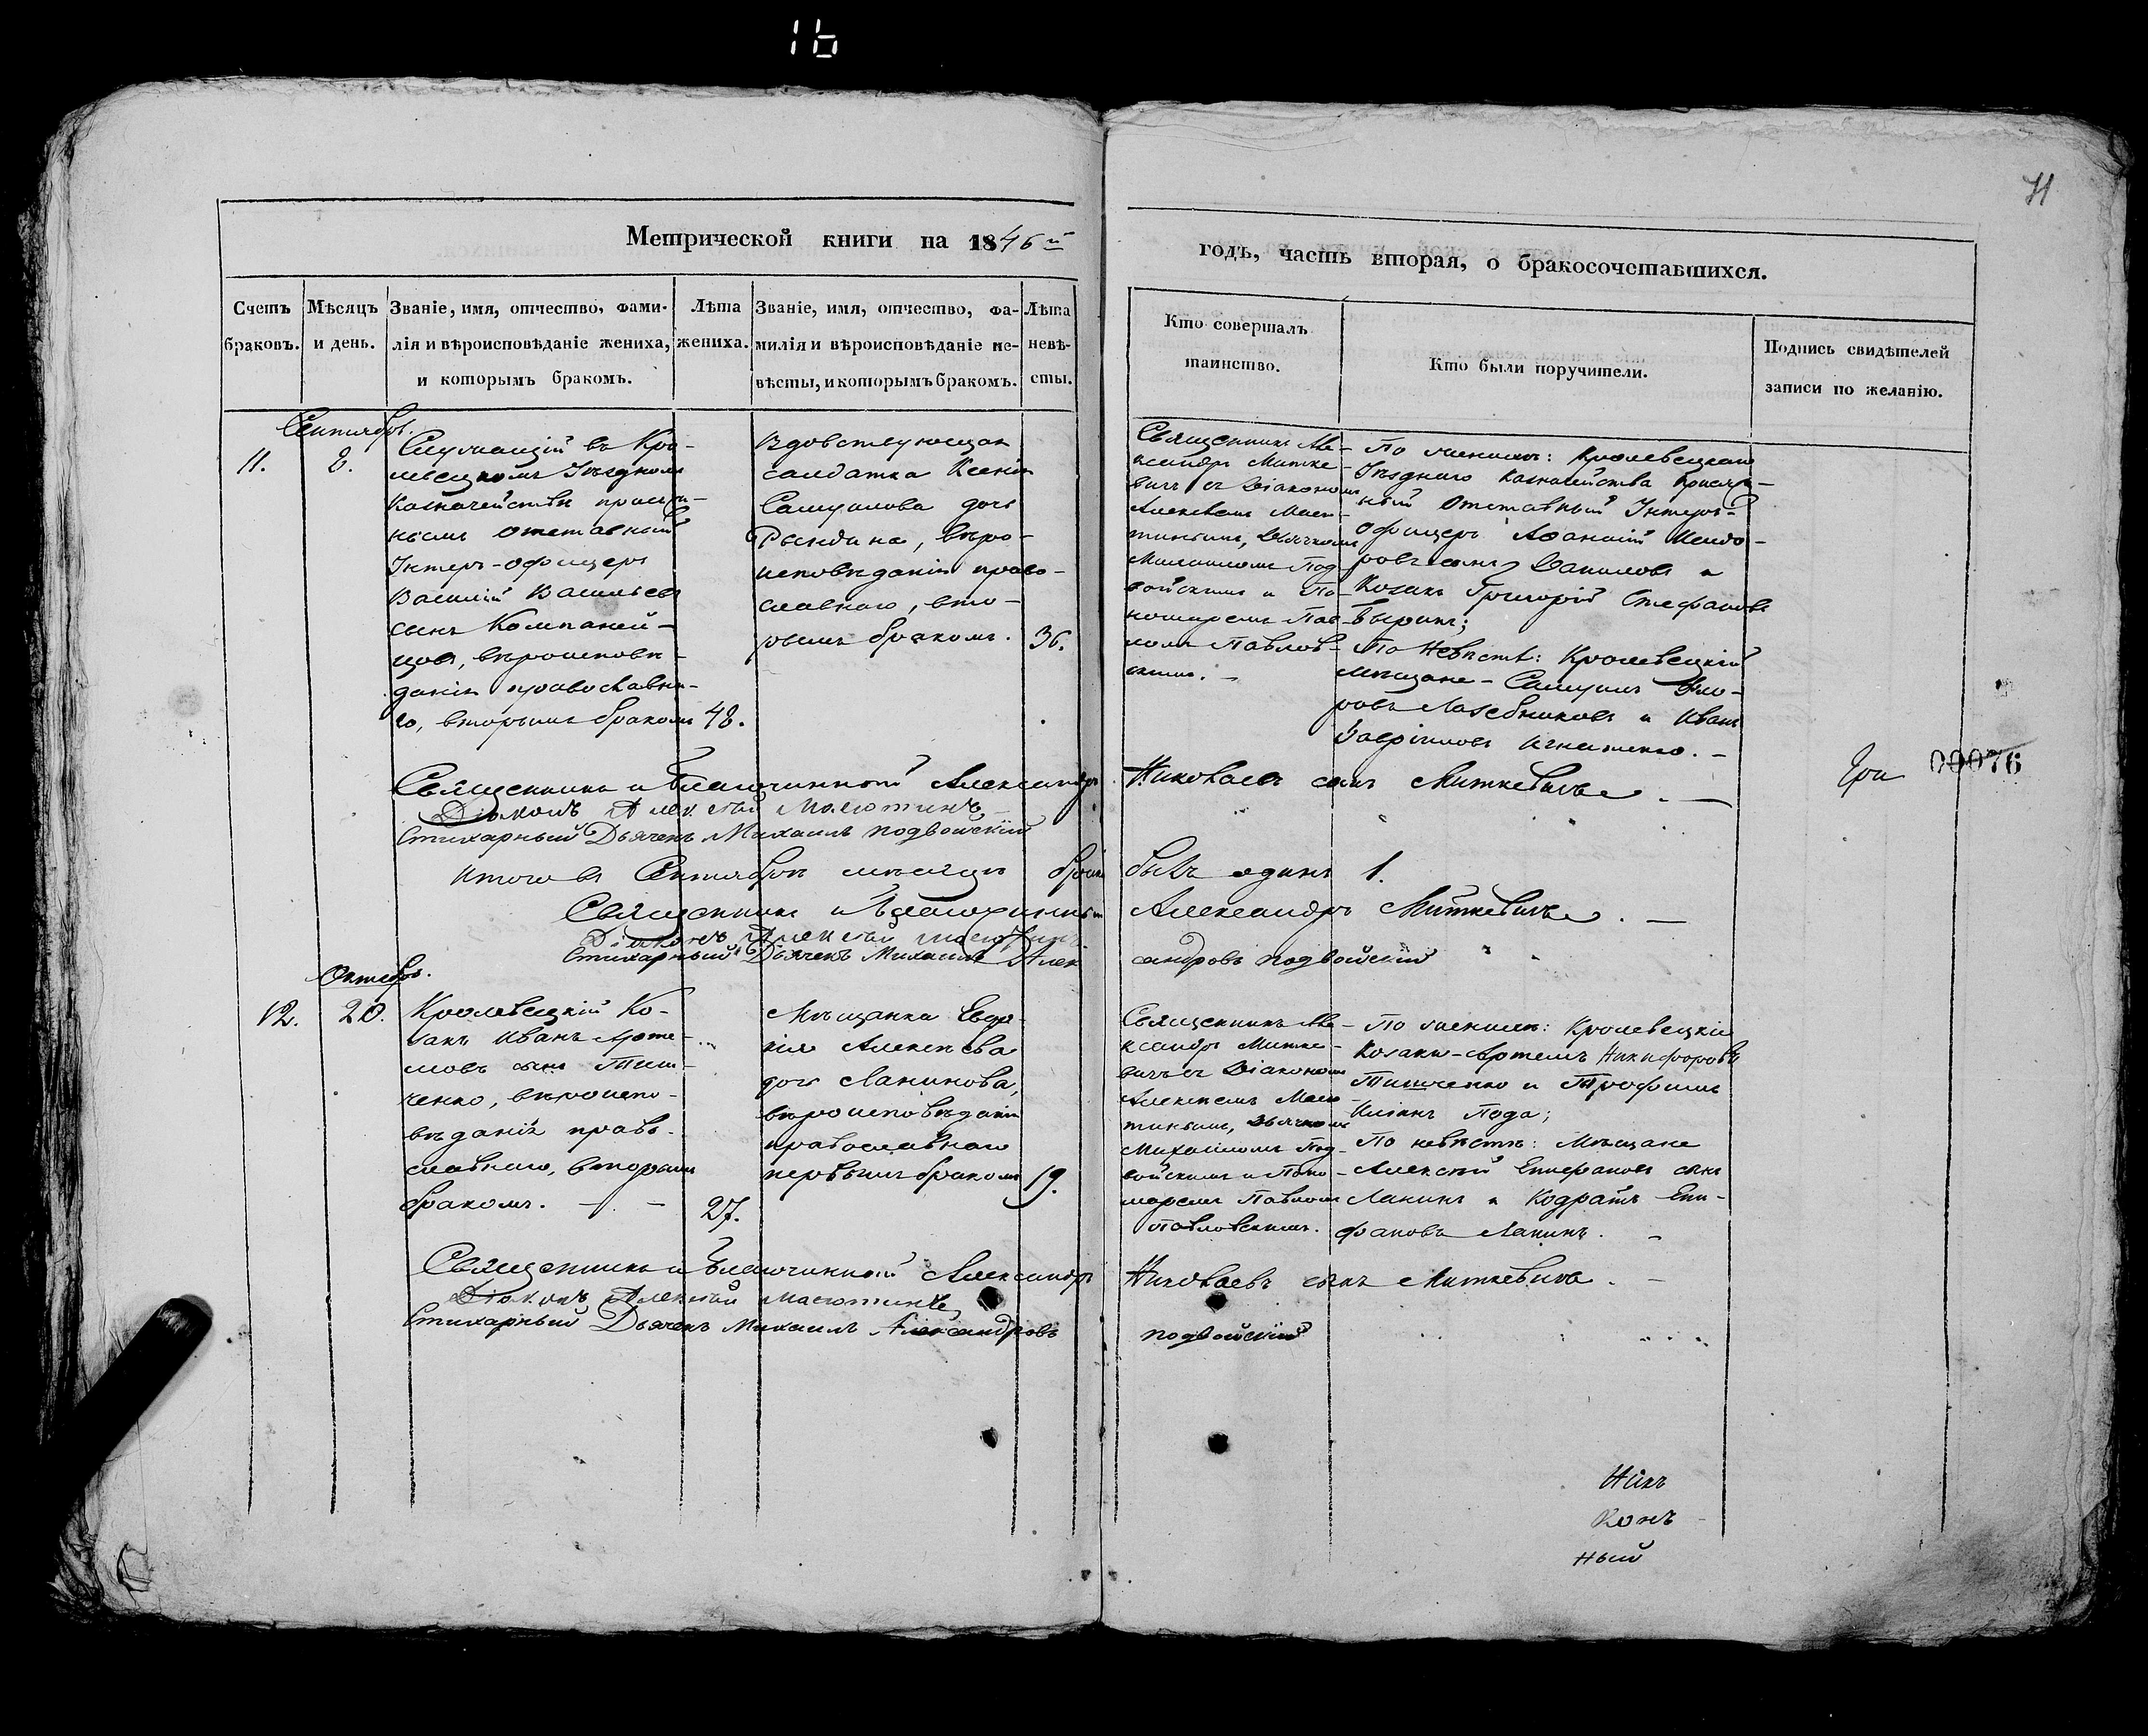 16
71
Метрической книги на 1846й
годъ, часть вторая, о бракосочетавшихся.
Счетъ браковъ.
Мѣсяцъ и день.
Званіе, имя, отчество, фами-
лія и вѣроисповѣданіе жениха,
и которымъ бракомъ.
Лѣта жениха.
Званіе, имя, отчество, фа-
милія и вѣроисповѣданіе не-
вѣсты, и которымъ бракомъ.
Лѣта невѣ-
сты.
Кто совершалъ
таинство.
Кто были поручители.
Подпись свидѣтелей
записи по желанію.
Сентябрь.
11.
8.
Служащій въ Кро-
левецкомъ Уѣздномъ
Казначействѣ присяж-
нымъ отставный
Унтеръ-офицеръ
Василій Васильевъ
сынъ Компаней-
цовъ, вѣроисповѣ-
данія православна-
го, вторымъ бракомъ
48.
Вдовствующая
солдатка Ксенія
Самуилова дочь
Рындина, вѣро-
исповѣданія право-
славнаго, вто-
рымъ бракомъ.
36.
Священникъ Але-
ксандръ Митке-
вичъ съ Діакономъ
Алексѣемъ Масю-
тинымъ, Дьячкомъ
Михаиломъ Под-
войскимъ и По-
номаремъ Пав-
ломъ Павлов-
скимъ.
По женихѣ: Кролевецкаго
Уѣзднаго Казначейства присяж-
ный Отставный Унтеръ-
Офицеръ Афанасій
сынъ Даниловъ и
Козакъ Григорій Стефановъ
По Невѣстѣ: Кролевецкій
мѣщане - Самуилъ
ровъ Лазебниковъ и Иванъ
Гавріиловъ Игнатенко.
Священникъ и Благочинный Александръ Николаевъ сынъ Миткевичъ.
Діаконъ Алексѣй Масютинъ
Стихарный Дьячекъ Михаилъ Подвойскій
00076
Итого въ Сентябрѣ мѣсяцѣ бракъ былъ одинъ 1.
Священникъ и Благочинный Александръ Миткевичъ.
Діаконъ Алексѣй Масютинъ
Стихарный Дьячекъ Михаилъ Александровъ Подвойскій
Октябрь.
12.
20.
Кролевецкій Ко-
закъ Иванъ Арте-
мовъ сынъ Тим-
ченко, вѣроиспо-
вѣданія право-
славнаго, вторымъ
бракомъ.
27.
Мѣщанка Евдо-
кія Алексѣева
дочь Ланинова,
вѣроисповѣданія
православнаго
первымъ бракомъ
19.
Священникъ Але-
ксандръ Митке-
вичъ съ Діакономъ
Алексѣемъ Масю-
тинымъ, Дьячкомъ
Михаиломъ Под-
войскимъ и Поно-
маремъ Павломъ
Павловскимъ.
По женихѣ: Кролевецкіе
Козаки - Артемъ Никифоровъ
Тимченко и Трофимъ
Пода;
По невѣстѣ: Мѣщане
Алексѣй Епифановъ сынъ
Ланинъ и Кодратъ Епи-
фановъ Ланинъ.
Священникъ и Благочинный Александръ Николаевъ сынъ Миткевичъ.
Діаконъ Алексѣй Масютинъ
Стихарный Дьячекъ Михаилъ Александровъ Подвойскій
конъ
ный